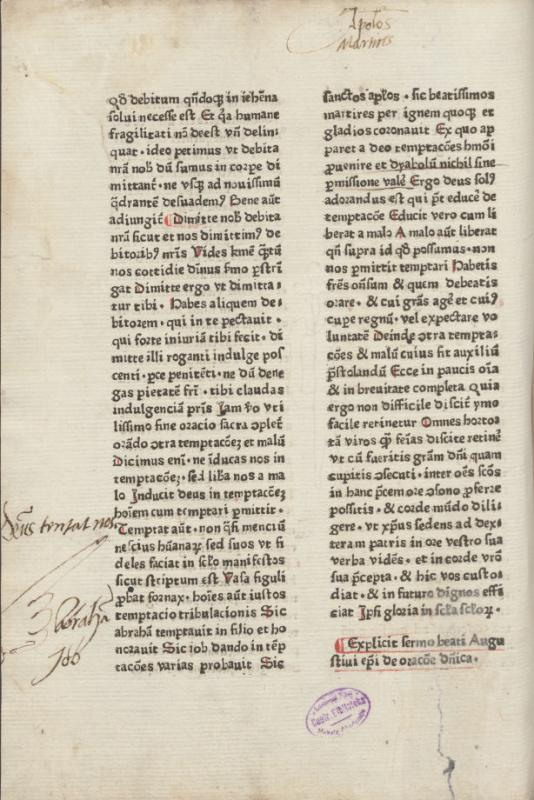 Apostolos
Martires
qd debitum qn̄doqꝫ in iehēna
solui necesse est Et qꝛ humane
fragilitati nō deest vn̄ delin⸗
quat · ideo petimus vt debita
nr̄a nob̄ dū sumus in corꝑe di
mittant᷑ · ne vsqꝫ ad nouissimū
q̄drantē desuademꝰ Bene aūt
adiungit᷑ Dimitte nob̄ debita
nr̄a sicut et nos dimittimꝰ de
bitoribꝰ nr̄is Vides
nos cottidie dinus
gat Dimitte ergo vt dimitta⸗
tur tibi · Habes aliquem de⸗
bitorem · qui in te peccauit ·
qui forte iniuriā tibi fecit · di
mitte illi roganti indulge pos
centi · ꝑce penitēti · ne dū dene
gas pietatē fr̄i · tibi claudas
indulgenciā pr̄is Jam v̄o vti
lissimo fine oracio sacra ꝯplet᷑
orādo ꝯtra temptacōeꝫ et malū
Dicimus eni᷑ · ne īducas nos in
temptacōeꝫ · sed lib̄a nos a ma
lo Inducit deus in temptacōeꝫ
hoīem cum temptari ꝑmittit ·
Temptat aūt · non q̄si menciū
nescius hūanaꝝ sed suos vt fi
deles faciat in sc̄lo manifestos
sicut scriptum est Vasa figuli
ꝓbat fornax · hoīes aūt iustos
temptacio tribulacionis Sic
abrahā temptauit in filio et ho
norauit Sic iob dando in tēp
tacōes varias probauit Sic
Deus tentat nos
Abrahā
Job
sanctos apl̄os · sic beatissimos
martires per ignem quoqꝫ et
gladios coronauit Ex quo ap
paret a deo temptacōes hmōi
ꝓuenire et dyabolū nichil sine
ꝑmissione valē Ergo deus solꝰ
adorandus est qui pt̄ educē de
temptacōe Educit vero cum li
berat a malo A malo aūt liberat
qn̄ supra id qd̄ possumus · non
nos ꝑmittit temptari Habetis
fr̄es on̄sum & quem debeatis
orare · & cui grās age᷑ et cuiꝰ
cupe regnū · vel expectare vo
luntatē Deinde ꝯtra tempta⸗
cōes & malū cuius sit auxiliū
p̄stolandū Ecce in paucis oīa
& in breuitate completa Quia
ergo non difficile discit᷑ ymo
facile retinetur Omnes hortor
tā viros qꝫ feīas discite retinē
vt cū fueritis grām dn̄i quam
cupitis ꝯsecuti · inter oēs scōs
in hanc p̄cem ore ꝯsono ꝓferre
possitis · & corde mūdo dili⸗
gere · vt xp̄us sedens ad dex⸗
teram patris in ore vestro sua
verba vidēs · et in corde vr̄o
sua p̄cepta · & hic vos custo⸗
diat · & in futuro dignos effi
ciat Ip̄i gloria in sc̄la sc̄loꝝ ·
Explicit sermo beati Augu
stiui ep̄i de oracōe dn̄ica ·